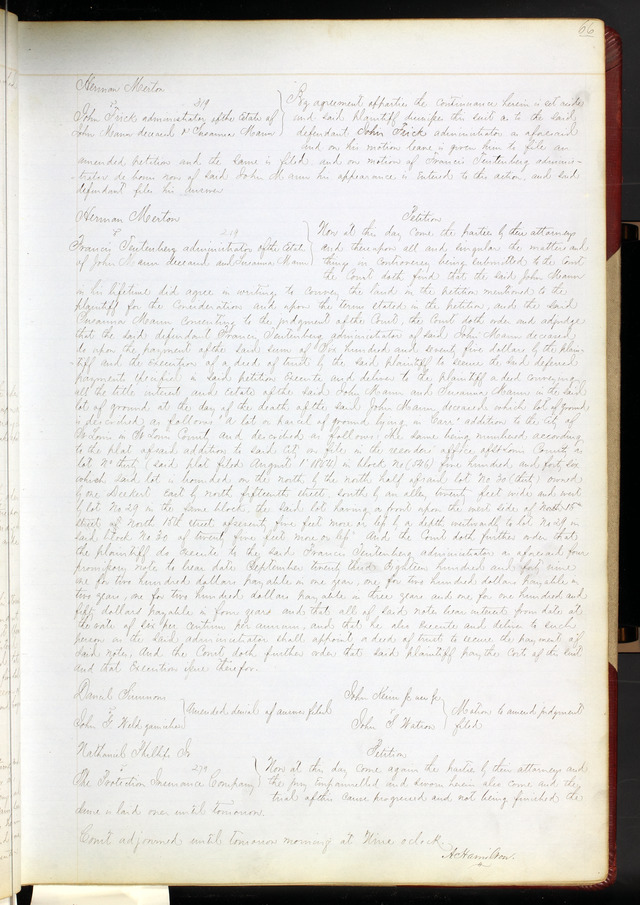 66
Herman Merton
vs 319
John Frick administrator of the Estate of
John Mann deceased & Susanna Mann
By agreement of parties the continuance herein is set aside
and said Plaintiff dismisses this suit as to the said
defendant John Frick administrator as aforesaid
And on his motion leave is given him to file an
amended petition and the same is filed, and on motion of Francis Teutenberg adminis-
-trator de bonis non of said John Mann his appearance is entered to this action, and said
defendant files his answer
Herman Merton
vs 319
Francis Teutenberg administrator of the Estate
of John Mann deceased and Susanna Mann
Petition
Now at this day come the parties by their attorneys
and thereupon all and singular the matters and
things in controversy being submitted to the Court
the Court doth find that the said John Mann
in his lifetime did agree in writing to convey the land in the petition mentioned to the
plaintiff for the Consideration and upon the terms stated in the petition, and the said
Susanna Mann consenting to the judgment of the Court, the Court doth order and adjudge
that the said defendant Francis Teutenberg administrator of said John Mann deceased,
do upon the payment of the said sum of five hundred and seventy five dollars by the plain-
-tiff and the execution of a deed of trust by the said plaintiff to secure the said deferred
payments specified in said petition execute and deliver to the plaintiff a deed conveying
all the title interest and estate of the said John Mann and Susanna Mann in the said
lot of ground at the day of the death of the said John Mann, deceased which lot of ground
is described as follows "A lot or parcel of ground lying in Carr's addition to the City of
St Louis in St Louis County and described as follows: the same being numbered according
to the plat of said addition to said City on file in the recorder's office of St Louis County, as
lot No thirty (said plat filed August 1st 1854) in block No (546) five hundred and forty six
which said lot is bounded on the north by the north half of said lot No 30 (thirty) owned
by one Deckert East by north fifteenth street, south by an alley twenty feet wide and west
by lot No 29 in the same block, the said lot having a front upon the west side of North 15th
street of North 15th street of seventy five feet more or less by a depth westwardly to lot No 29 in
said block No 30 of twenty five feet more or less" And the Court doth further order that
the plaintiff do execute to the said Francis Teutenberg administrator as aforesaid four
promissory notes to bear date September twenty third Eighteen hundred and fifty nine
one for two hundred dollars payable in one year, one for two hundred dollars payable in
two years, one for two hundred dollars payable in three years and one for one hundred and
fifty dollars payable in four years and that all of said notes bear interest from date at
the rate of six per centum per annum, and that he also execute and deliver to such
person as the said administrator shall appoint a deed of trust to secure the payment of
said notes, And the Court doth further order that said plaintiff pay the costs of this suit
and that Execution issue therefor.
Daniel
vs
John F Wild garnishee
Amended denial of answer filed
John Kern for use
vs
John T Watson
Motion to amend judgment
filed
Nathaniel Phillips Jr
vs 279
The Protection Insurance Company
Petition
Now at this day come again the parties by their attorneys and
the jury empannelled and sworn herein also come and the
trial of this cause progressed and not being finished the
same is laid over until tomorrow.
Court adjourned until tomorrow morning at Nine o'clock.
A Hamilton